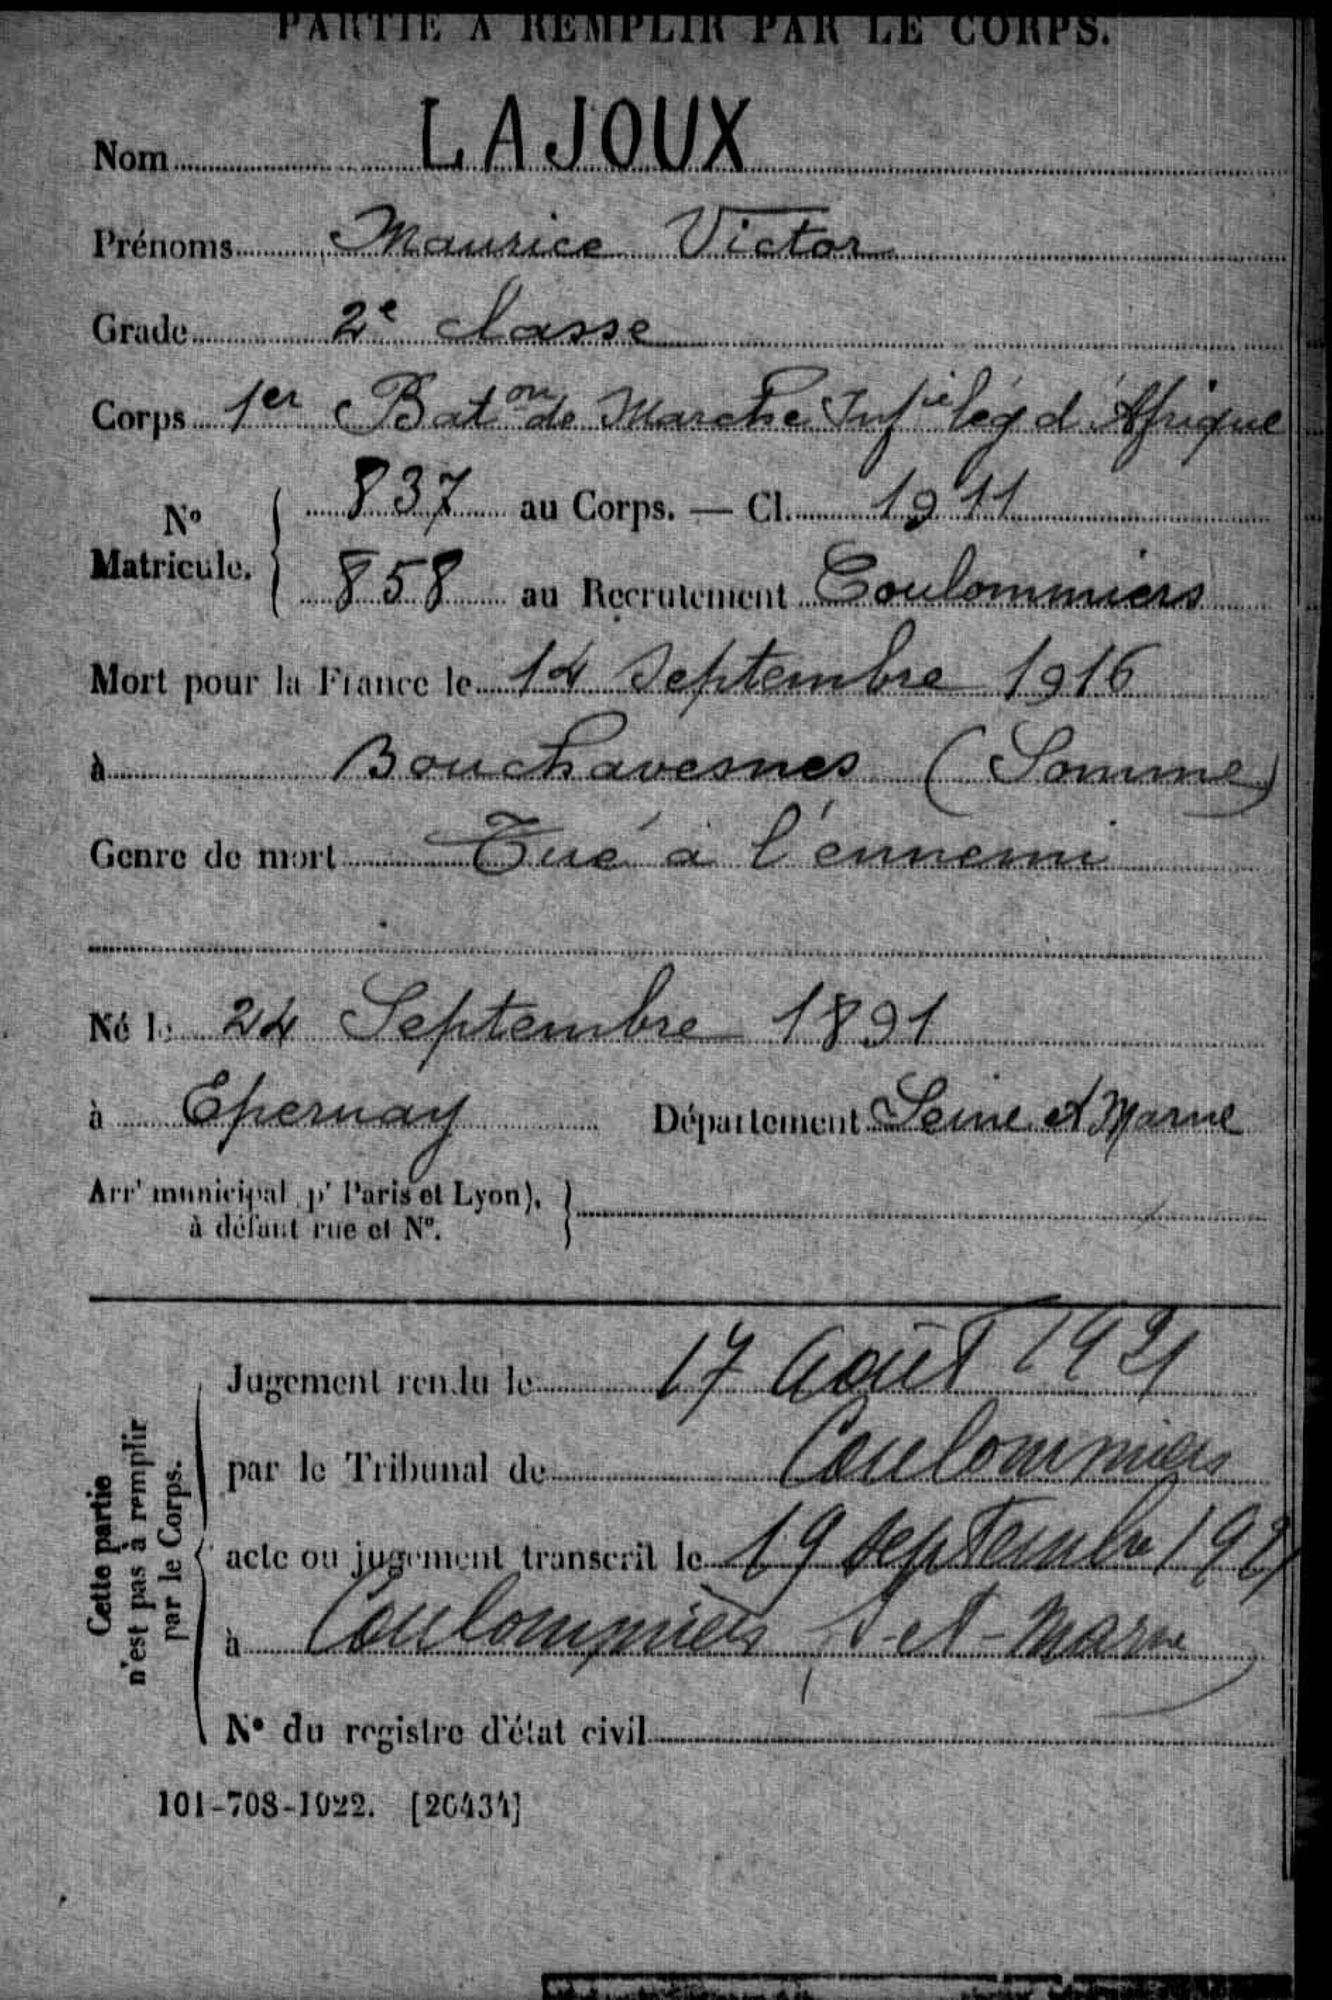 PARTIE A REMPLIR PAR LE CORPS.
Nom LAJOUX
Prénoms Maurice Victor
Grade 2e classe
Corps 1er Baton de Marche Infie lég d'Afrique
No Matricule. 837 au Corps. — Cl. 1911
858 au Recrutement Coulommiers
Mort pour la France le 14 Septembre 1916
à Bouchavesnes (Somme)
Genre de mort Tué à l'ennemi
Né le 24 Septembre 1891
à Epernay Département Seine et Marne
Arrt municipal pr Paris et Lyon),
à défaut rue et No.
Cette partie
n'est pas à remplir
par le Corps.
Jugement rendu le 17 Août 1921
par le Tribunal de Coulommiers
acte ou jugement transcrit le 19 septembre 1921
à Coulommiers S-et-Marne
No du registre d'état civil
101-708-1922. [26434]